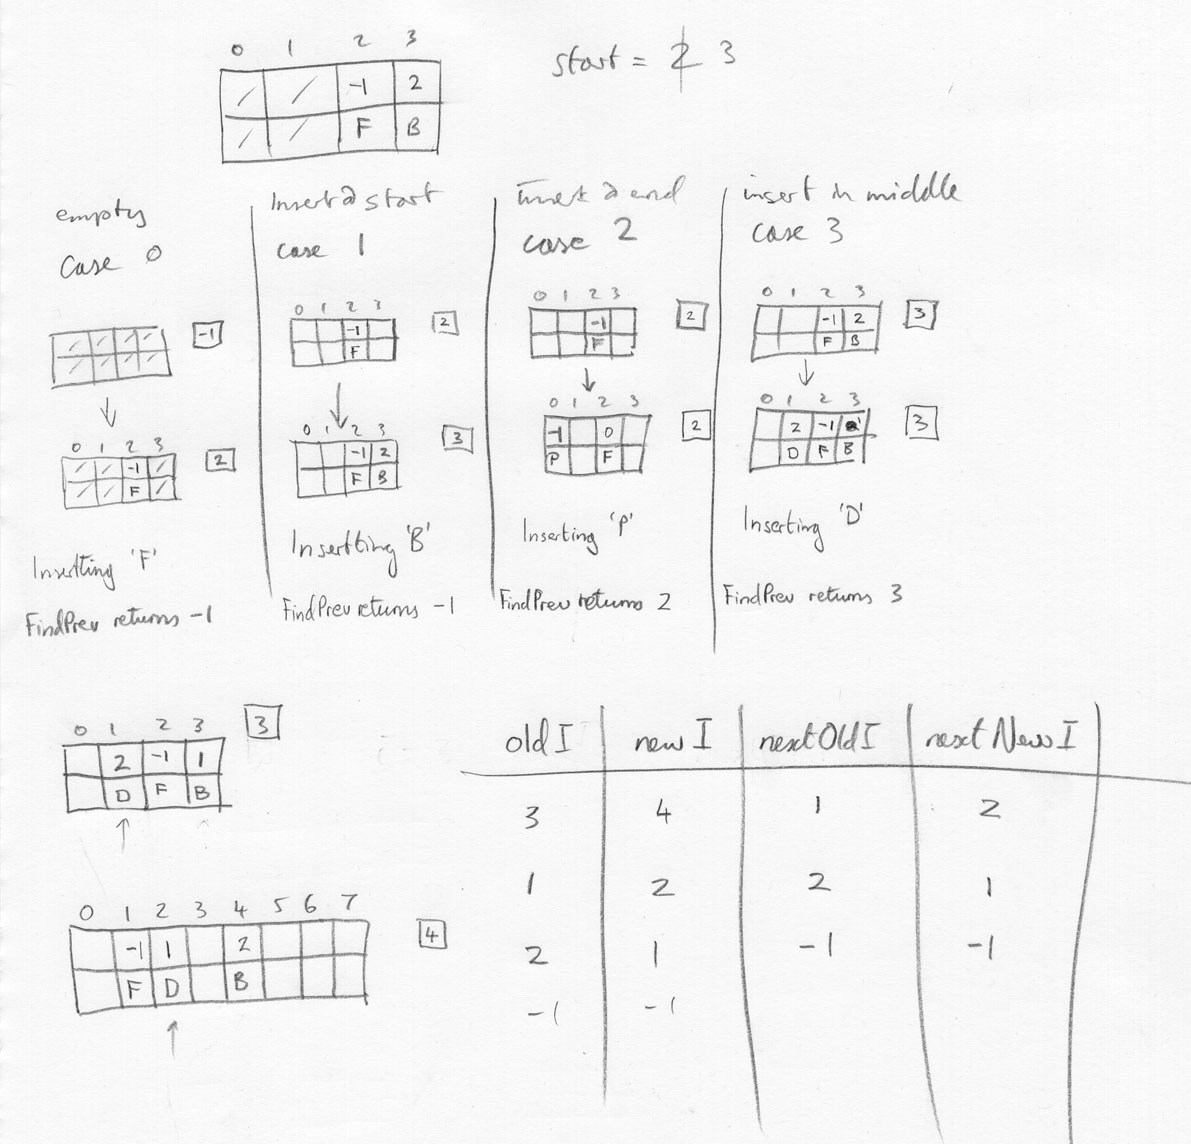 0 1 2 3
-1 2
F B
start = 2 3
empty
Case 0
0 1 2 3
-1
-1
F
2
Insertting 'F'
FindPrev returns -1
Insert @ start
case 1
0 1 2 3
-1
F
2
0 1 2 3
-1 2
F B
3
Insertting 'B'
FindPrev returns -1
Insert @ end
case 2
0 1 2 3
-1
F
2
0 1 2 3
-1 0
P F
2
Inserting 'P'
FindPrev returns 2
insert in middle
case 3
0 1 2 3
-1 2
F B
3
0 1 2 3
2 -1
D F B
3
Inserting 'D'
FindPrev returns 3
0 1 2 3
2 -1 1
D F B
3
0 1 2 3 4 5 6 7
-1 1 2
F D B
4
old I new I nextOldI nextNewI
3 4 1 2
1 2 2 1
2 1 -1 -1
-1 -1